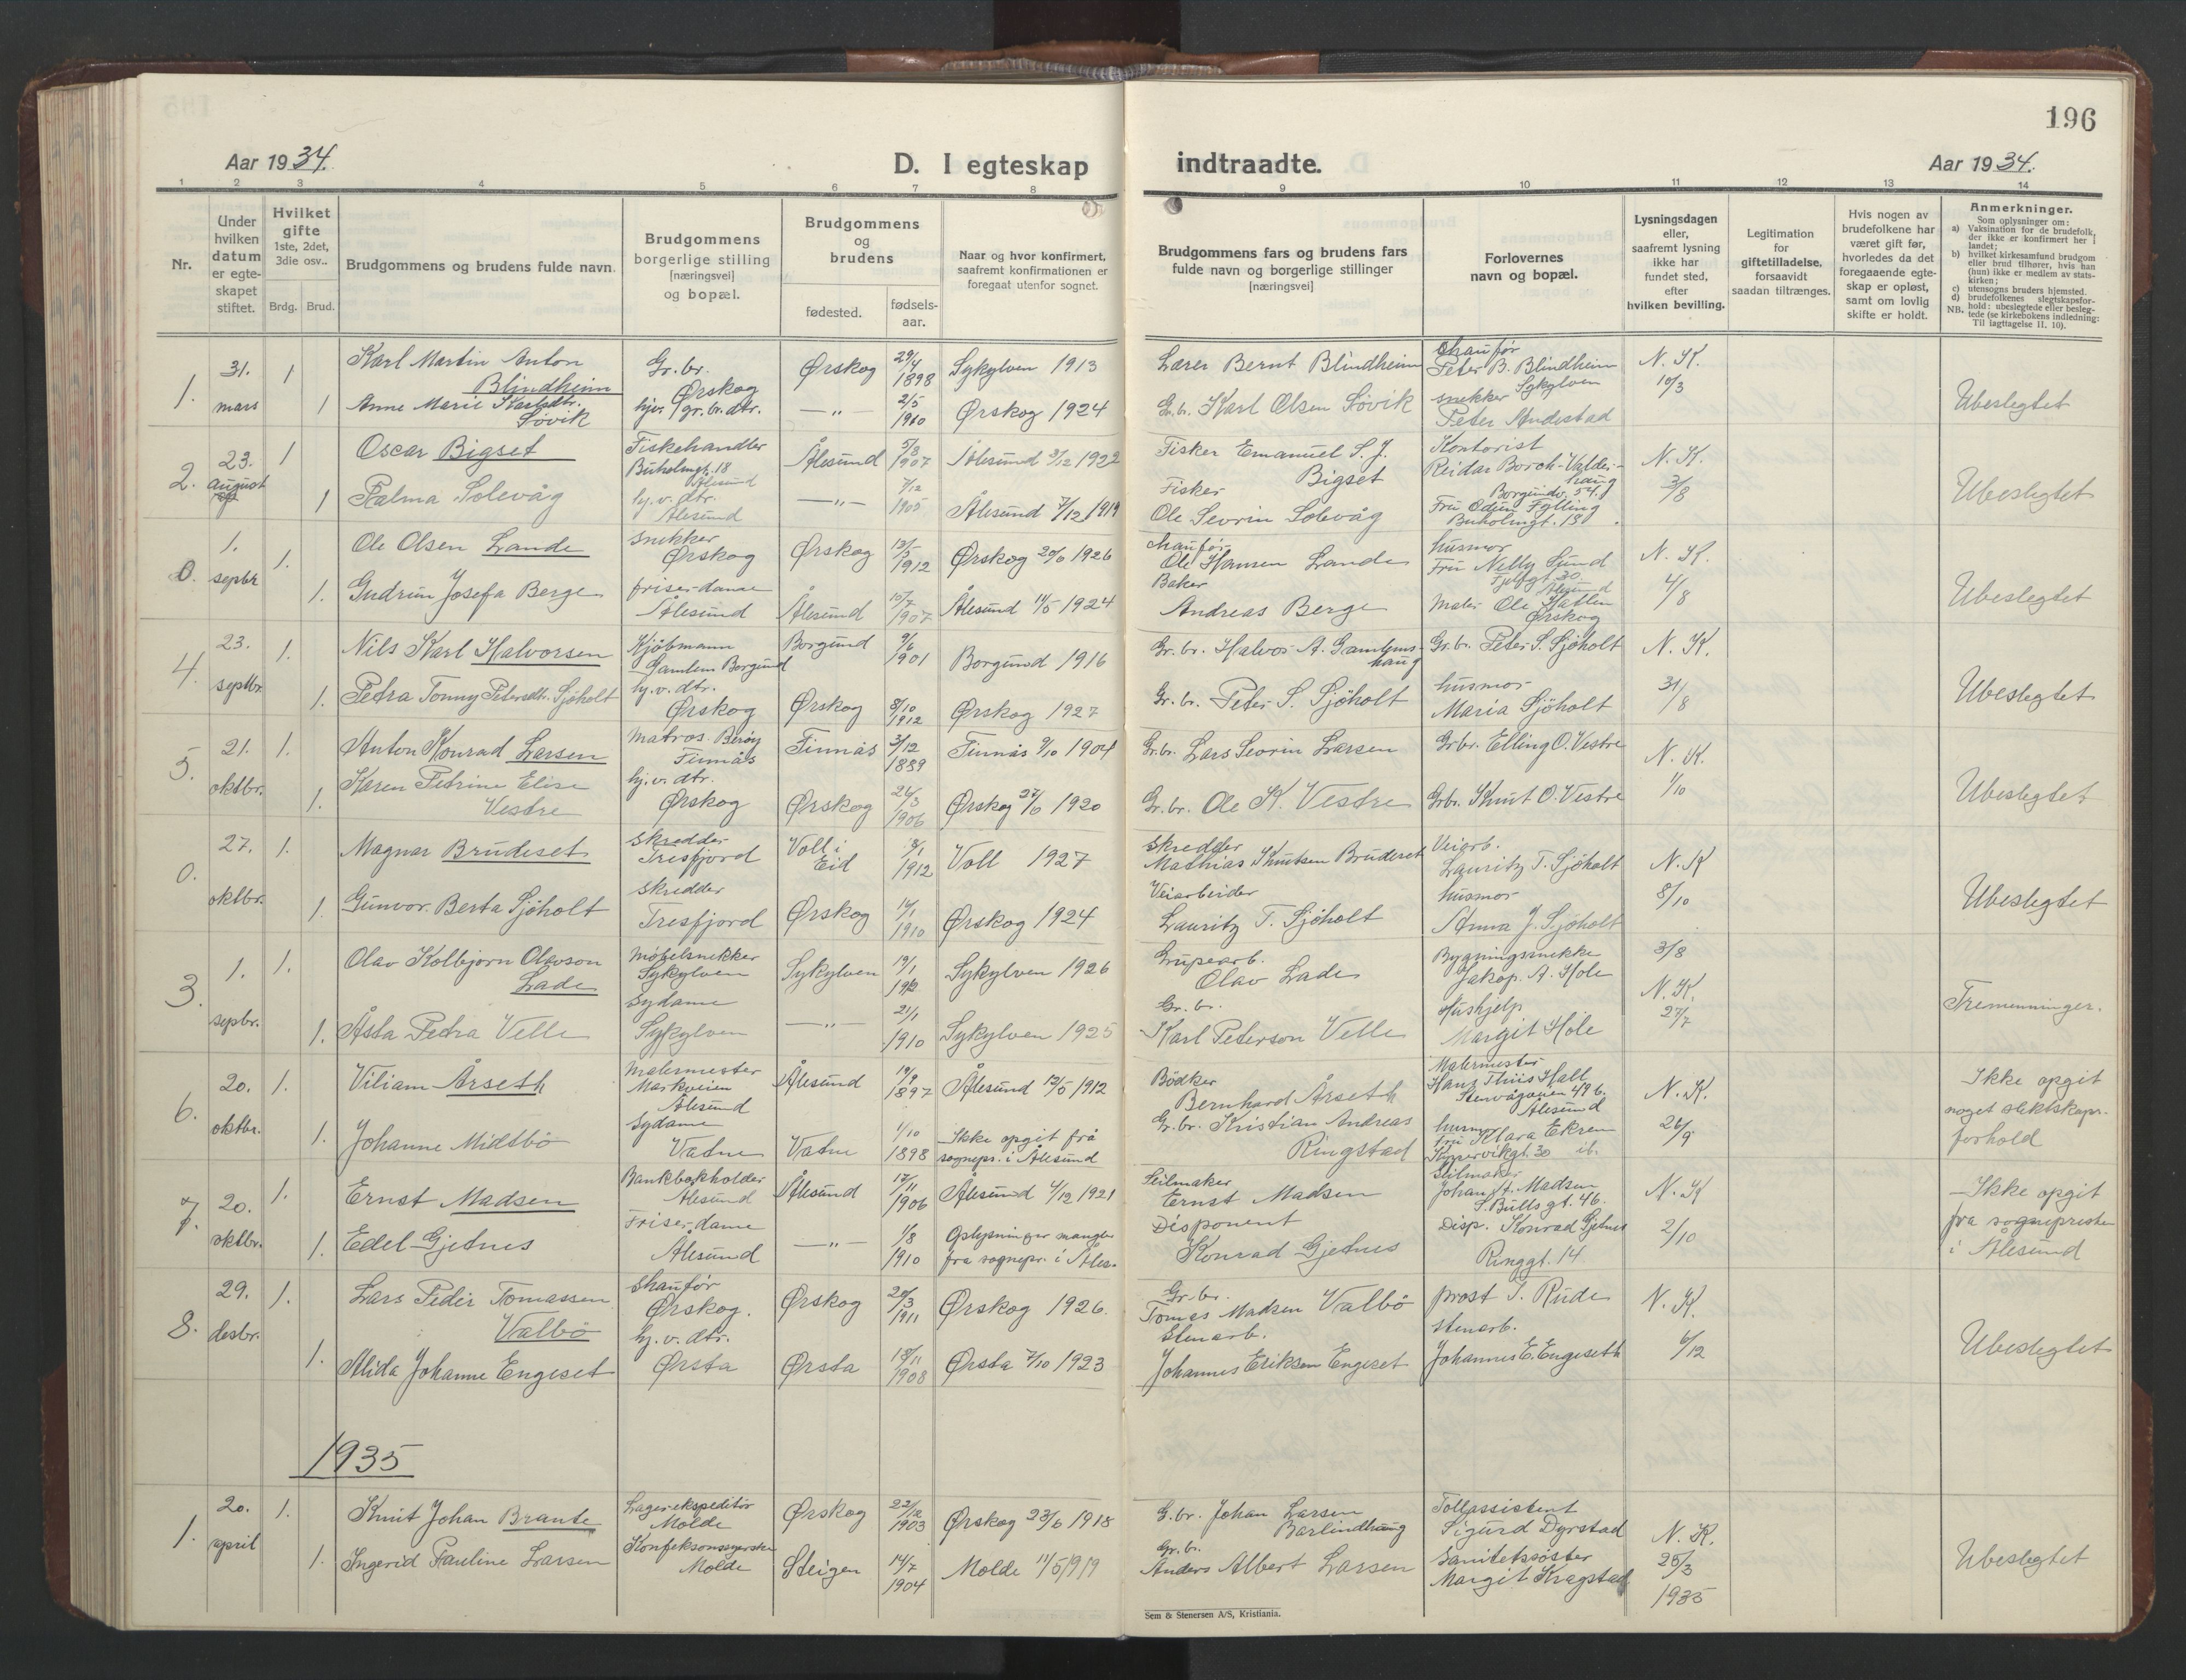 196
Aar 1934.
D. I egteskap indtraadte.
Aar 1934.
1 2 3 4 5 6 7 8 9 10 11 12 13 14
Nr.
Under
hvilken
datum
er egte-
skapet
stiftet.
Hvilket
gifte
1ste, 2det,
3die osv..
Brdg. Brud.
Brudgommens og brudens fulde navn.
Brudgommens
borgerlige stilling
[næringsvei]
og bopæl.
Brudgommens
og
brudens
fødested.
fødsels-
aar.
Naar og hvor konfirmert,
saafremt konfirmationen er
foregaat utenfor sognet.
Brudgommens fars og brudens fars
fulde navn og borgerlige stillinger
[næringsvei]
Forlovernes
navn og bopæl.
Lysningsdagen
eller,
saafremt lysning
ikke har
fundet sted,
efter
hvilken bevilling.
Legitimation
for
giftetilladelse,
forsaavidt
saadan tiltrænges.
Hvis nogen av
brudefolkene har
været gift før,
hvorledes da det
foregaaende egte-
skap er opløst,
samt om lovlig
skifte er holdt.
Anmerkninger.
Som oplysninger om:
a) Vaksination for de brudefolk,
der ikke er konfirmert her i
landet;
b) hvilket kirkesamfund brudgom
eller brud tilhører, hvis han
(hun) ikke er medlem av stats-
kirken;
c) utensogns bruders hjemsted.
d) brudefolkenes slegtskapsfor-
hold: ubeslegtede eller besleg-
NB. tede (se kirkebokens indledning:
Til iagttagelse II. 10).
1. 31. mars 1 Karl Martin Anton
Blindheim
Gr. br.
Ørskog
Ørskog 29/4 1898 Sykylven 1913
Lærer Bernt Blindheim
chaufør
Peter B. Blindheim
Sykylven
N. K.
10/3
1 Anne Marie Karlsdtr.
Løvik
hjv. / gr. br. dtr.
—"— 2/5 1900 Ørskog 1924
Gr. br. Karl Olsen Løvik
snekker
Peter Andestad
Ubeslegtet
2. 23. august 1 Oscar Bigset
Fiskehandler
Buholmgt. 18
Ålesund
Ålesund 5/3 1907 Ålesund 3/12 1922
Fisker Emanuel S. J.
Bigset
Kontorist
Reidar Borch-Valder-
haug
Borgundv. 54.
N. K.
3/8
1 Palma Solevåg
hj. v. dtr.
Ålesund
—"— 7/12 1905 Ålesund 7/12 1919
Fisker
Ole Sevrin Solevåg
Fru Odun Fylling
Buholmgt. 18
Ubeslegtet
0. 1. septbr 1. Ole Olsen Lande
snekker
Ørskog
Ørskog 13/5 1912 Ørskog 20/6 1926
chaufør
Ole Hansen Lande
husmor
Fru Nelly Lund
Ålesund
N. K.
4/8
1. Gudrun Josefa Berge
friser-dame
Ålesund
Ålesund 15/7 1907 Ålesund 11/5 1924
Baker
Andreas Berge
Maler Ole Hatlen
Ørskog
Ubeslegtet
4. 23. septbr. 1. Nils Karl Halvorsen
Kjøbmann
Gamlem Borgund
Borgund 9/6 1901 Borgund 1916
Gr. br. Halvor A. Gamlems-
haug
Gr. br. Peter S. Sjøholt
N. K.
31/8
1. Petra Tonny Petersdtr. Sjøholt
hj. v. dtr.
Ørskog
Ørskog 8/10 1912 Ørskog 1927
Gr. br. Peter S. Sjøholt
husmor
Maria Sjøholt
Ubeslegtet
5. 21. oktbr. 1. Anton Konrad Larsen
Matros. Berøy
Finnås
Finnås 3/12 1889 Finnås 9/10 1904
Gr. br. Lars Sevrin Larsen
Gr. br. Elling O. Vestre
N. K.
1/10
1. Karen Petrine Elise
Vestre
hj. v. dtr.
Ørskog
Ørskog 26/3 1906 Ørskog 27/6 1920
Gr. br. Ole K. Vestre
Grbr. Knut O. Vestre
Ubeslegtet
0. 27. oktbr. 1. Magnar Brudeset
Skredder
Tresfjord
Voll i
Eid
1912 Voll 1927
skredder
Mathias Knutsen Brudeset
Veiarb.
Lauritz T. Sjøholt
N. K
8/10
1. Gunvor Berta Sjøholt
skredder
Tresfjord
Ørskog 14/1 1910 Ørskog 1924
Veiarbeider
Lauritz T. Sjøholt
husmor
Anna J. Sjøholt
Ubeslegtet
3. 1. sepbr. 1. Olav Kolbjørn Olavson
Lade
Møbelsnekker
Sykylven
Sykylven 19/1 1912 Sykylven 1926
Grupearb.
Olav Lade
Bygningssnekke
Jakop. A. Hole
3/8
N. K.
27/7
1. Åsta Petra Velle
Sydame
Sykylven
—"— 21/1 1910 Sykylven 1925
Gr. br.
Karl Peterson Velle
Hushjelp
Margit Hole
Tremenninger.
6. 20. oktbr. 1. Viliam Årseth
Malermester
Markveien
Ålesund
Ålesund 19/9 1897 Ålesund 12/5 1912
Bødker
Bernhard Årseth
Malermester
Hans Thiis Hall
Stenvågveien 49 b.
Ålesund
N. K.
26/9
1. Johanne Midtbø
sydame
Vatne
Vatne 1/10 1898 Ikke opgit frå
sognepr. i Ålesund
Gr. br. Kristian Andreas
Ringstad
husmor
Fru Klara Ekren
Kippervikgt. 30 ib.
Ikke opgit
noget slektskaps-
forhold
7. 20. oktbr. 1. Ernst Madsen
Bankbokholder
Ålesund
Ålesund 17/11 1906 Ålesund 4/12 1921
Seilmaker
Ernst Madsen
Seilmaker
Johan A. Madsen
S. Bulls gt. 46.
N. K
2/10
1. Edel Gjetnes
Friser-dame
Ålesund
—"— 1/8 1910 Oplysninger mangler
fra sognepr. i Åles.
Disponent
Konrad Gjetnes
Disp. Konrad Gjetnes
Ringgt. 14
Ikke opgit
fra sognepresten
i Ålesund
8. 29. desbr. 1. Lars Peder Tomassen
Valbø
shaufør
Ørskog.
Ørskog 20/3 1911 Ørskog 1926.
Gr. br.
Tomas Madsen Valbø
prost S. Rude
N. K.
6/12
1. Alida Johanne Engeset
hj. v. dtr.
Ørsta
Ørsta 18/11 1908 Ørsta 7/10 1923
Stenarb.
Johannes Eriksen Engeset
stenarb.
Johannes E. Engeseth
Ubeslegtet
1935
1. 20. april 1. Knut Johan Brante
Lager-ekspeditør
Molde
Ørskog 22/12 1903 Ørskog 23/6 1918
G. br. Johan Larsen
Barlindhaug
Tollassistent
Sigurd Dyrstad
N. K.
25/3
1935
1. Ingerid Pauline Larsen
Konfeksonssyerske
Molde
Steigen 14/7 1904 Molde 11/5 1919
Gr. br.
Anders Albert Larsen
Sanitetssøster
Margit Kragstad
Ubeslegtet
Sem & Stenersen A/S, Kristiania.